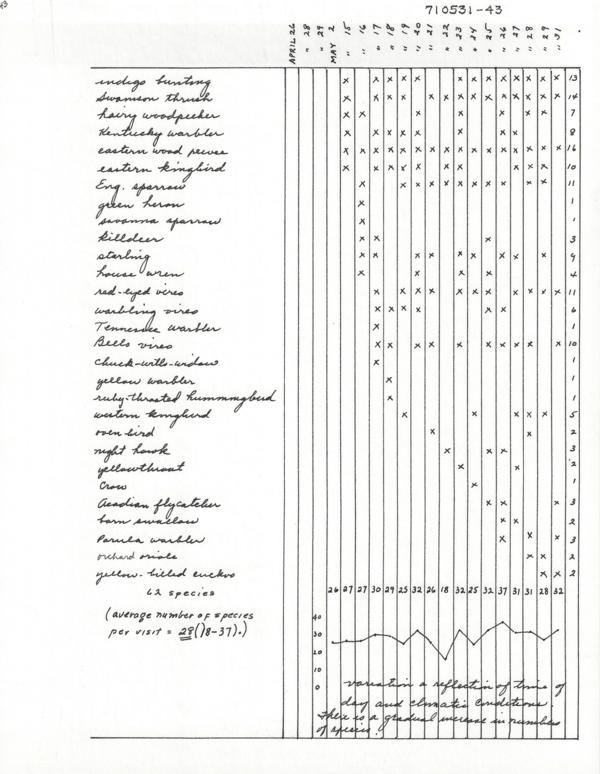 43
710531-43
APRIL 26 " 28 " 29 MAY 2 " 15 " 16 " 17 " 18 " 19 " 20 " 21 " 22 " 23 " 24 " 25 " 26 " 27 " 28 " 29 " 31
indigo bunting 13
Swainson thrush 14
hairy woodpecker 7
Kentucky warbler 8
eastern wood pewee 16
eastern kingbird 10
Eng. sparrow 11
green heron 1
savanna sparrow 1
killdeer 3
starling 9
house wren 4
red-eyed vireo 11
warbling vireo 6
Tennessee warbler 1
Bells vireo 10
chuck-wills-widow 1
yellow warbler 1
ruby-throated hummingbird 1
western kingbird 5
oven bird 2
night hawk 3
yellowthroat 2
Crow 1
Acadian flycatcher 3
barn swallow 2
Parula warbler 3
orchard oriole 2
yellow-billed cuckoo 2
62 species 26 27 27 30 29 25 32 26 18 32 25 32 37 31 31 28 32
(average number of species
per visit = 28 (18-37).)
40
30
20
10
0
variation a reflection of time of
day and climatic conditions.
There is a gradual increase in numbers
of species.